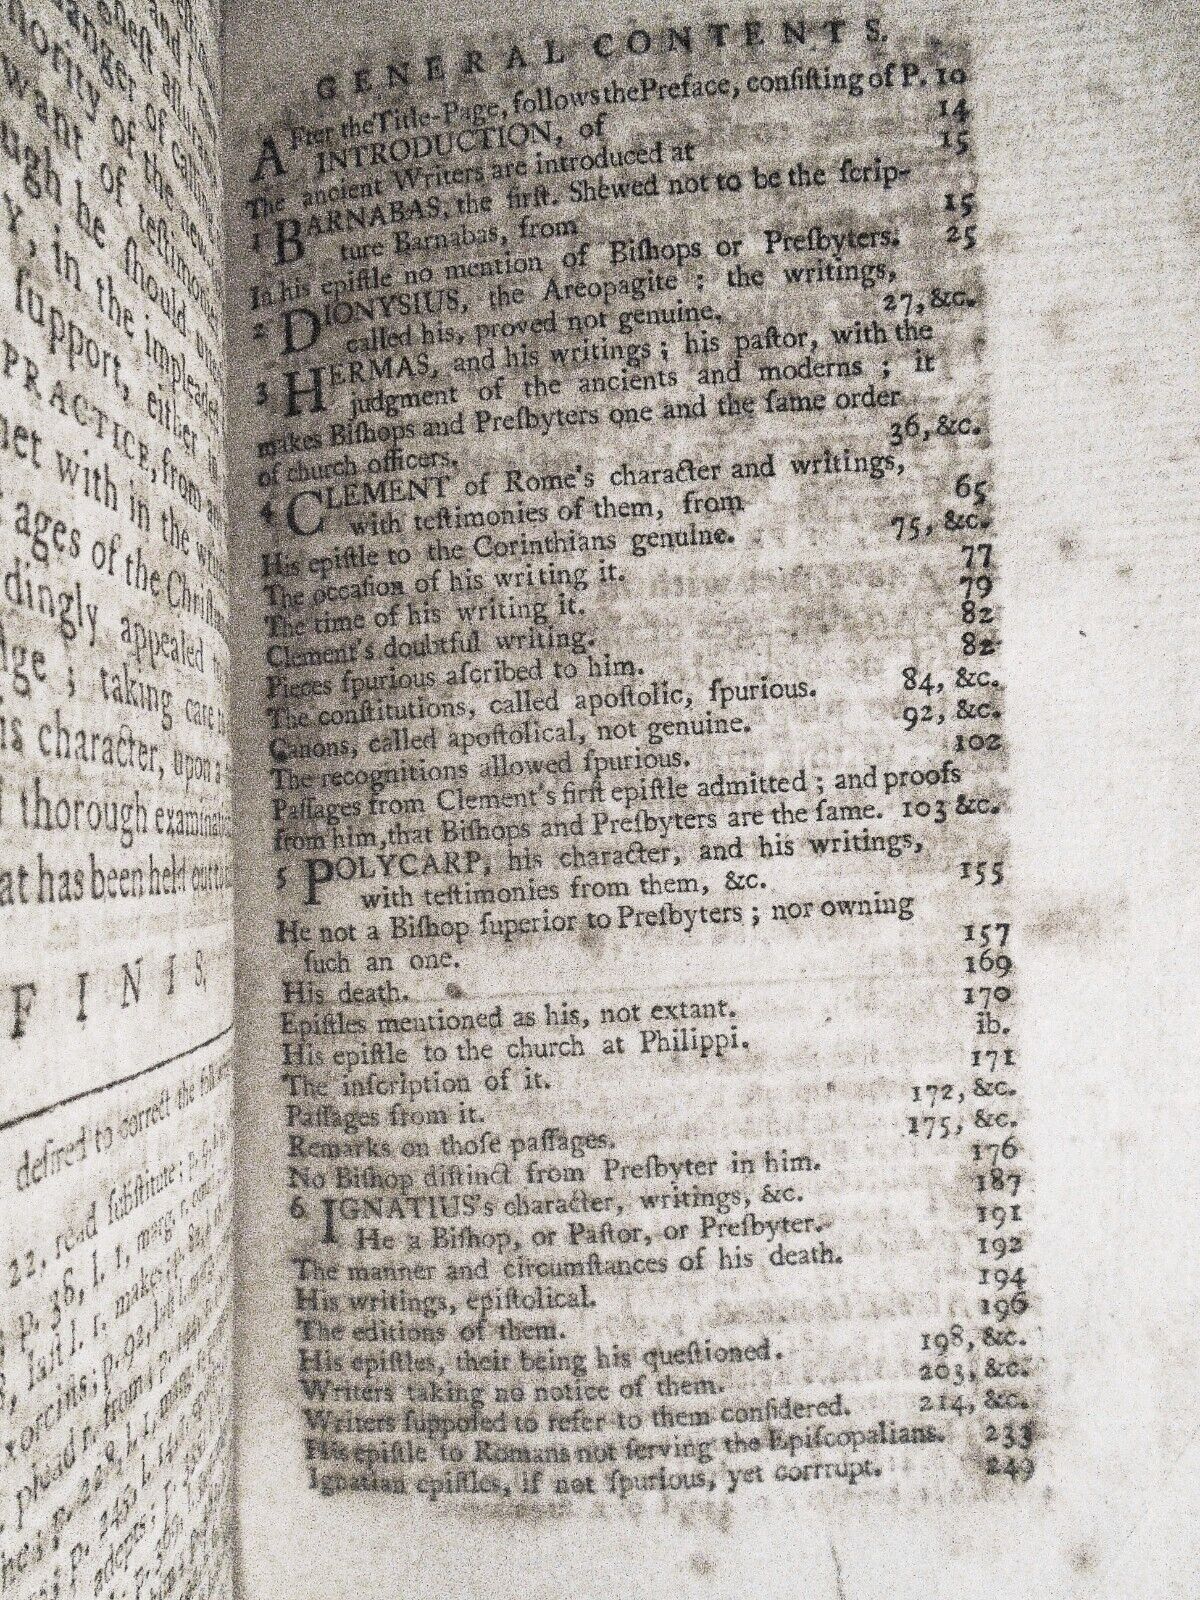 anger of
nority of the
want of testimonies
ugh he should
Y, in the impleaded
support, either in
PRACTICE, from
met with in the
ages of the
dingly appealed
dge ; taking care
is character, upon a
thorough
at has been held out
FINIS,
desired to correct the
22, read substitute ;
P. 36, l. 1, marg. r.
last l. r. make
GENERAL CONTENTS.
AFter the Title-Page, follows the Preface, consisting of P. 10
INTRODUCTION, of 14
The ancient Writers are introduced at 15
1 BARNABAS, the first. Shewed not to be the scrip-
ture Barnabas, from 15
In his epistle no mention of Bishops or Presbyters. 25
2 DIONYSIUS, the Areopagite ; the writings,
called his, proved not genuine. 27, &c.
3 HERMAS, and his writings ; his pastor, with the
judgment of the ancients and moderns ; it
makes Bishops and Presbyters one and the same order
of church officers. 36, &c.
4 CLEMENT of Rome's character and writings,
with testimonies of them, from 65
His epistle to the Corinthians genuine. 75, &c.
The occasion of his writing it. 77
The time of his writing it. 79
Clement's doubtful writing. 82
Pieces spurious ascribed to him. 82
The constitutions, called apostolic, spurious. 84, &c.
Canons, called apostolical, not genuine. 92, &c.
The recognitions allowed spurious. 102
Passages from Clement's first epistle admitted ; and proofs
from him, that Bishops and Presbyters are the same. 103 &c.
5 POLYCARP, his character, and his writings,
with testimonies from them, &c. 155
He not a Bishop superior to Presbyters ; nor owning
such an one. 157
His death. 169
Epistles mentioned as his, not extant. 170
His epistle to the church at Philippi. ib.
The inscription of it. 171
Passages from it. 172, &c.
Remarks on those passages. 175, &c.
No Bishop distinct from Presbyter in him. 176
6 IGNATIUS's character, writings, &c. 187
He a Bishop, or Pastor, or Presbyter. 191
The manner and circumstances of his death. 192
His writings, epistolical. 194
The editions of them. 196
His epistles, their being his questioned. 198, &c.
Writers taking no notice of them. 203, &c.
Writers supposed to refer to them considered. 214, &c.
His epistle to Romans not serving the Episcopalians. 233
Ignatian epistles, if not spurious, yet corrrupt. 249